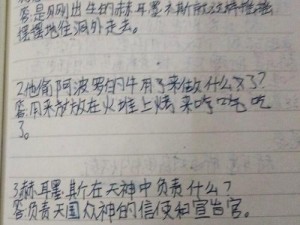 答是刚出生的赫耳墨斯敢这样摇摇
摇摇地往洞外走去。
2.他偷阿波罗的牛用了来做什么了?
答:用来放放在火堆上烤来吃吃吃
了。
3.赫耳墨斯在天神中负责什么?
答:负责天国众神的信使和宣告官。